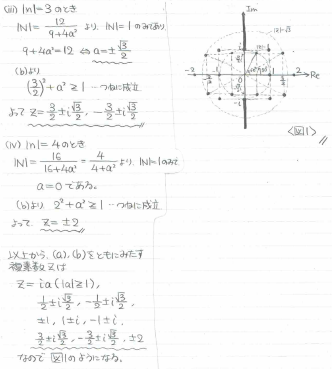 (iii) |n|=3 のとき
|N| = 12/(9+4a²) より |N|=1 のみであり
9+4a²=12 ⇔ a=±√3/2
(b)より
(3/2)²+a²≧1 …つねに成立
よって z=3/2±i√3/2, -3/2±i√3/2 〃
(iv) |n|=4 のとき
|N| = 16/(16+4a²) = 4/(4+a²) より |N|=1のみで
a=0 である。
(b)より 2²+a²≧1 …つねに成立
よって z=±2
以上から、(a),(b)をともにみたす
複素数 z は
z = ia (|a|≧1),
1/2±i√3/2, -1/2±i√3/2,
±1, 1±i, -1±i,
3/2±i√3/2, -3/2±i√3/2, ±2
なので 図1のようになる。
Im
|z|=√3
-2
-1
1
2
Re
-i
<図1>
〃